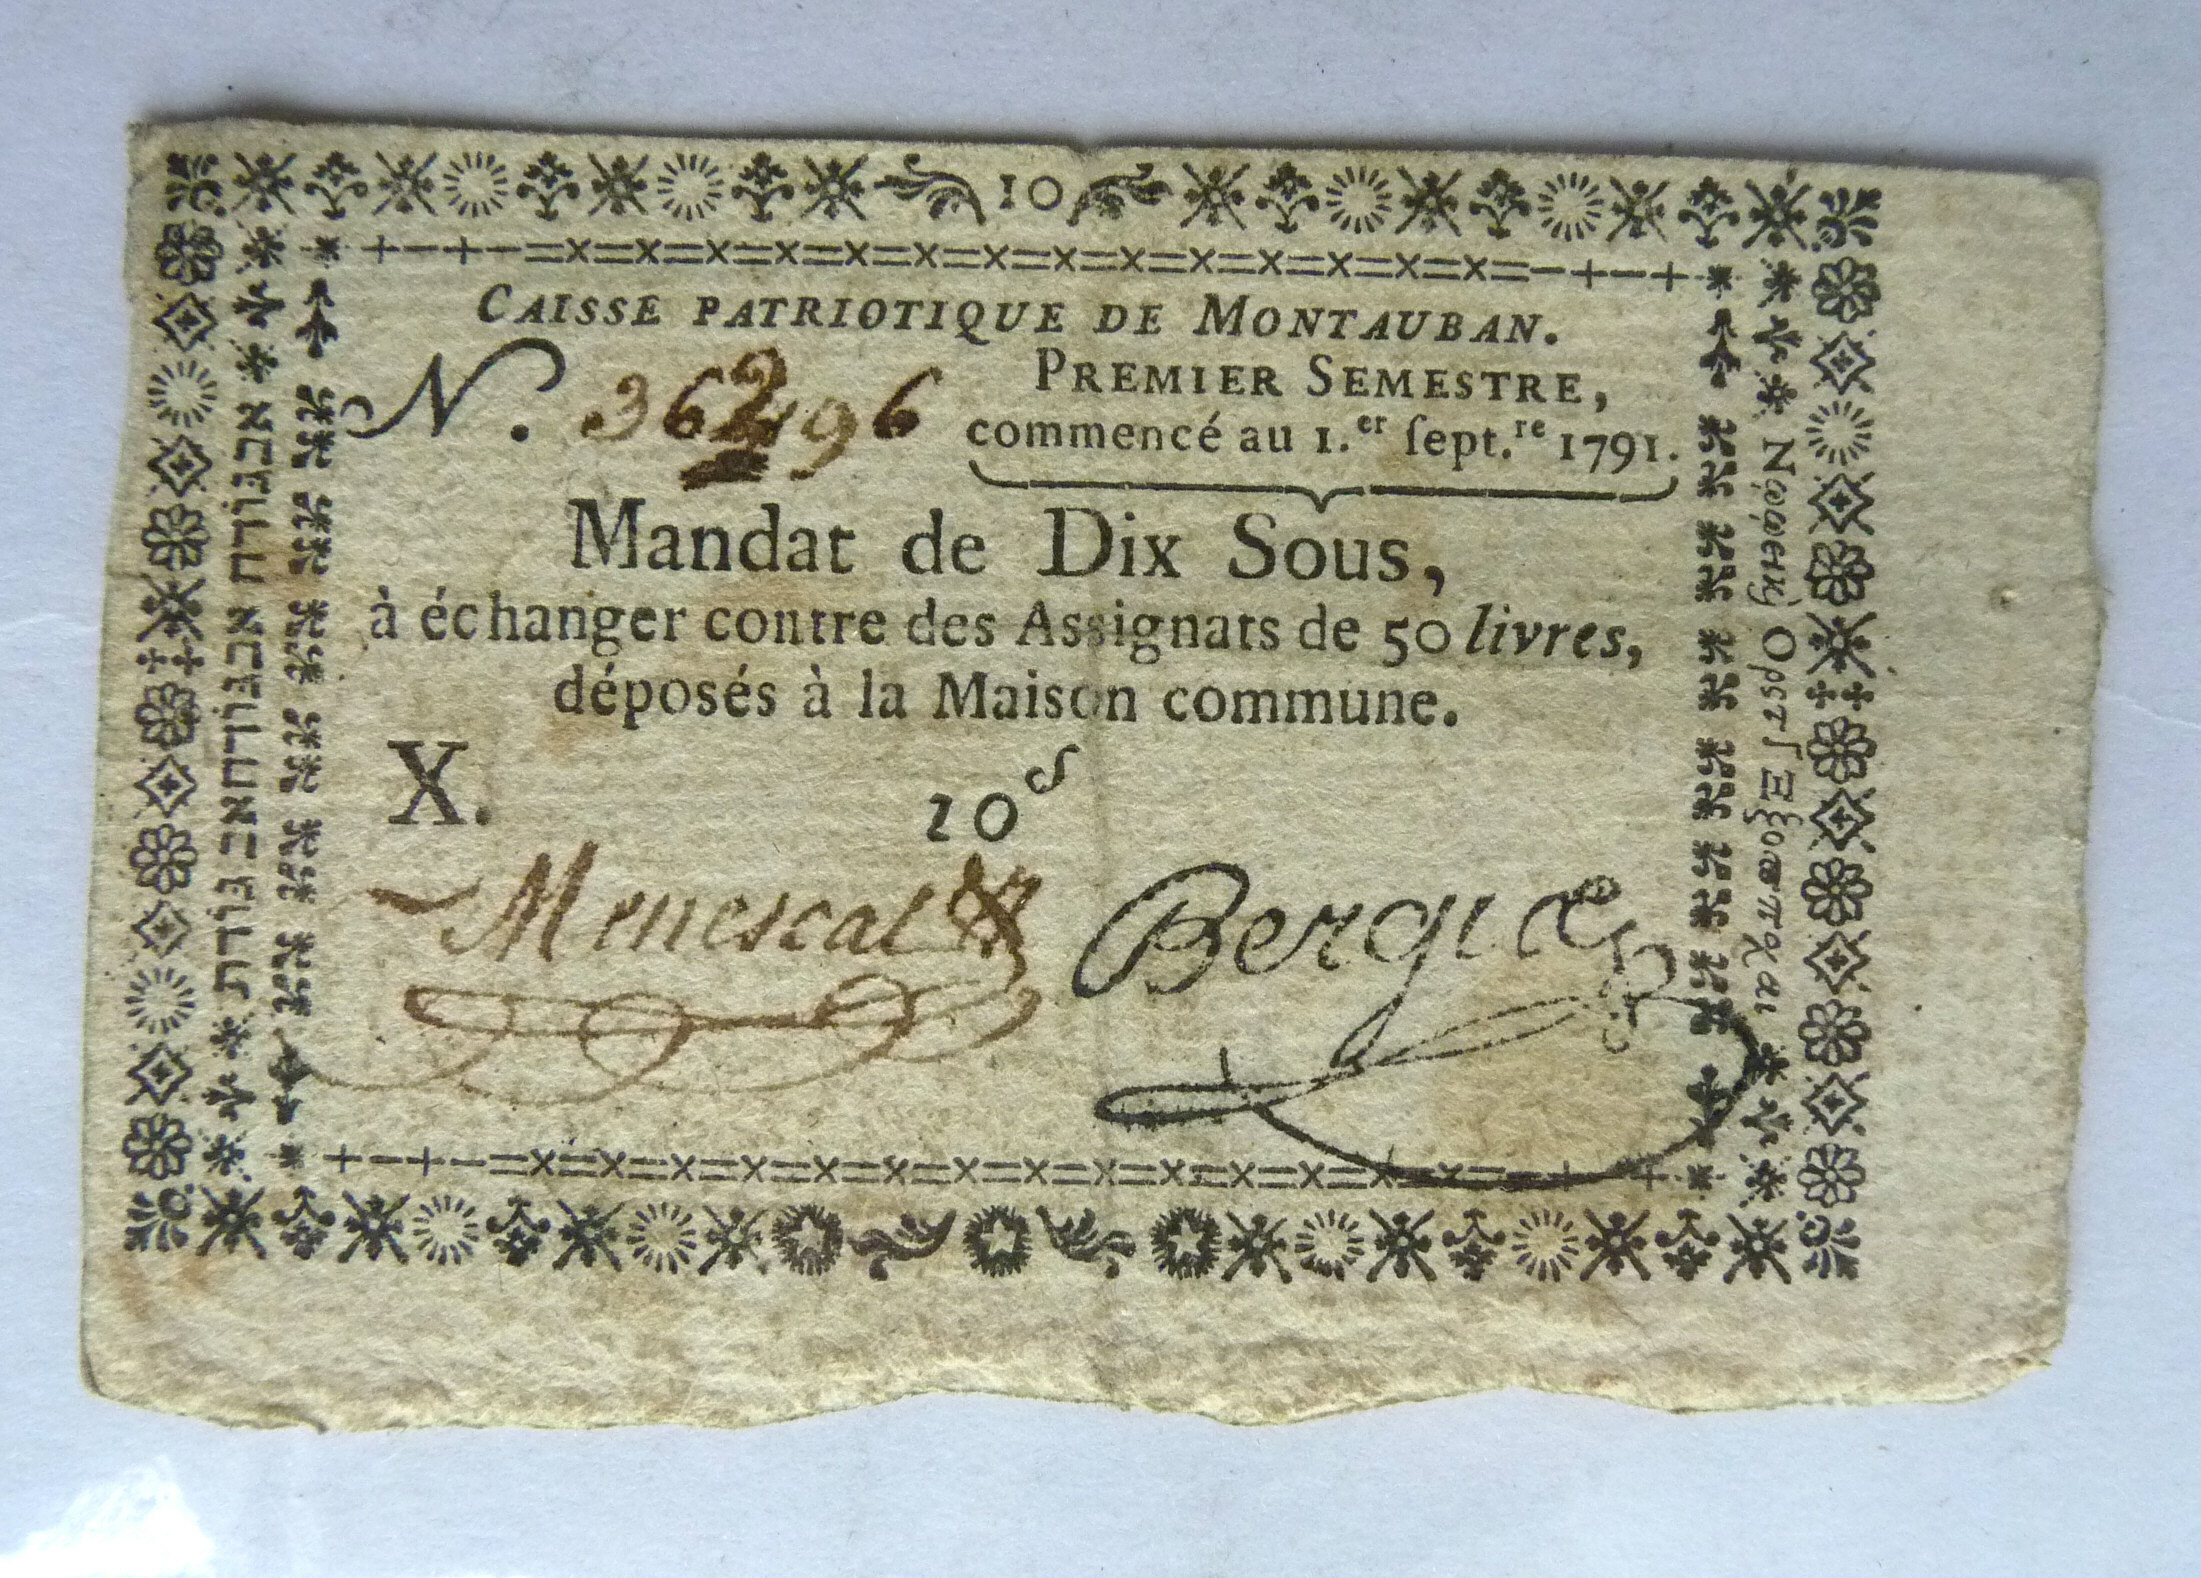 10
CAISSE PATRIOTIQUE DE MONTAUBAN.
N. 362496
PREMIER SEMESTRE,
commencé au 1.er ſept.re 1791.
Mandat de Dix Sous,
à échanger contre des Assignats de 50 livres,
déposés à la Maison commune.
X.
10 s
Menescal
Bergis